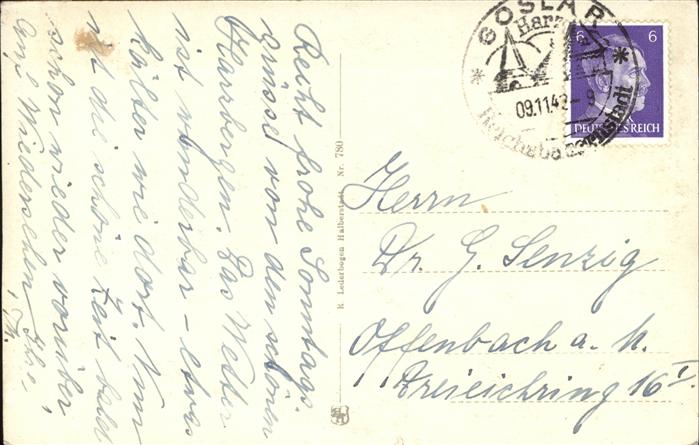 Recht frohe Sonntags-
grüsse von den schönen
Harzbergen. Das Wetter
ist wunderbar – etwas
kälter wie dort. Nun
ist die schöne Zeit bald
schon wieder vorüber
Auf Wiedersehen Ihre
R. Lederbogen Halberstadt Nr. 780
GOSLAR
Harz
09.11.42 - 9
Reichsbauernstadt
6 6
DEUTSCHES REICH
Herrn
Dr. G. Senzig
Offenbach a. M.
Dreieichring 16 I